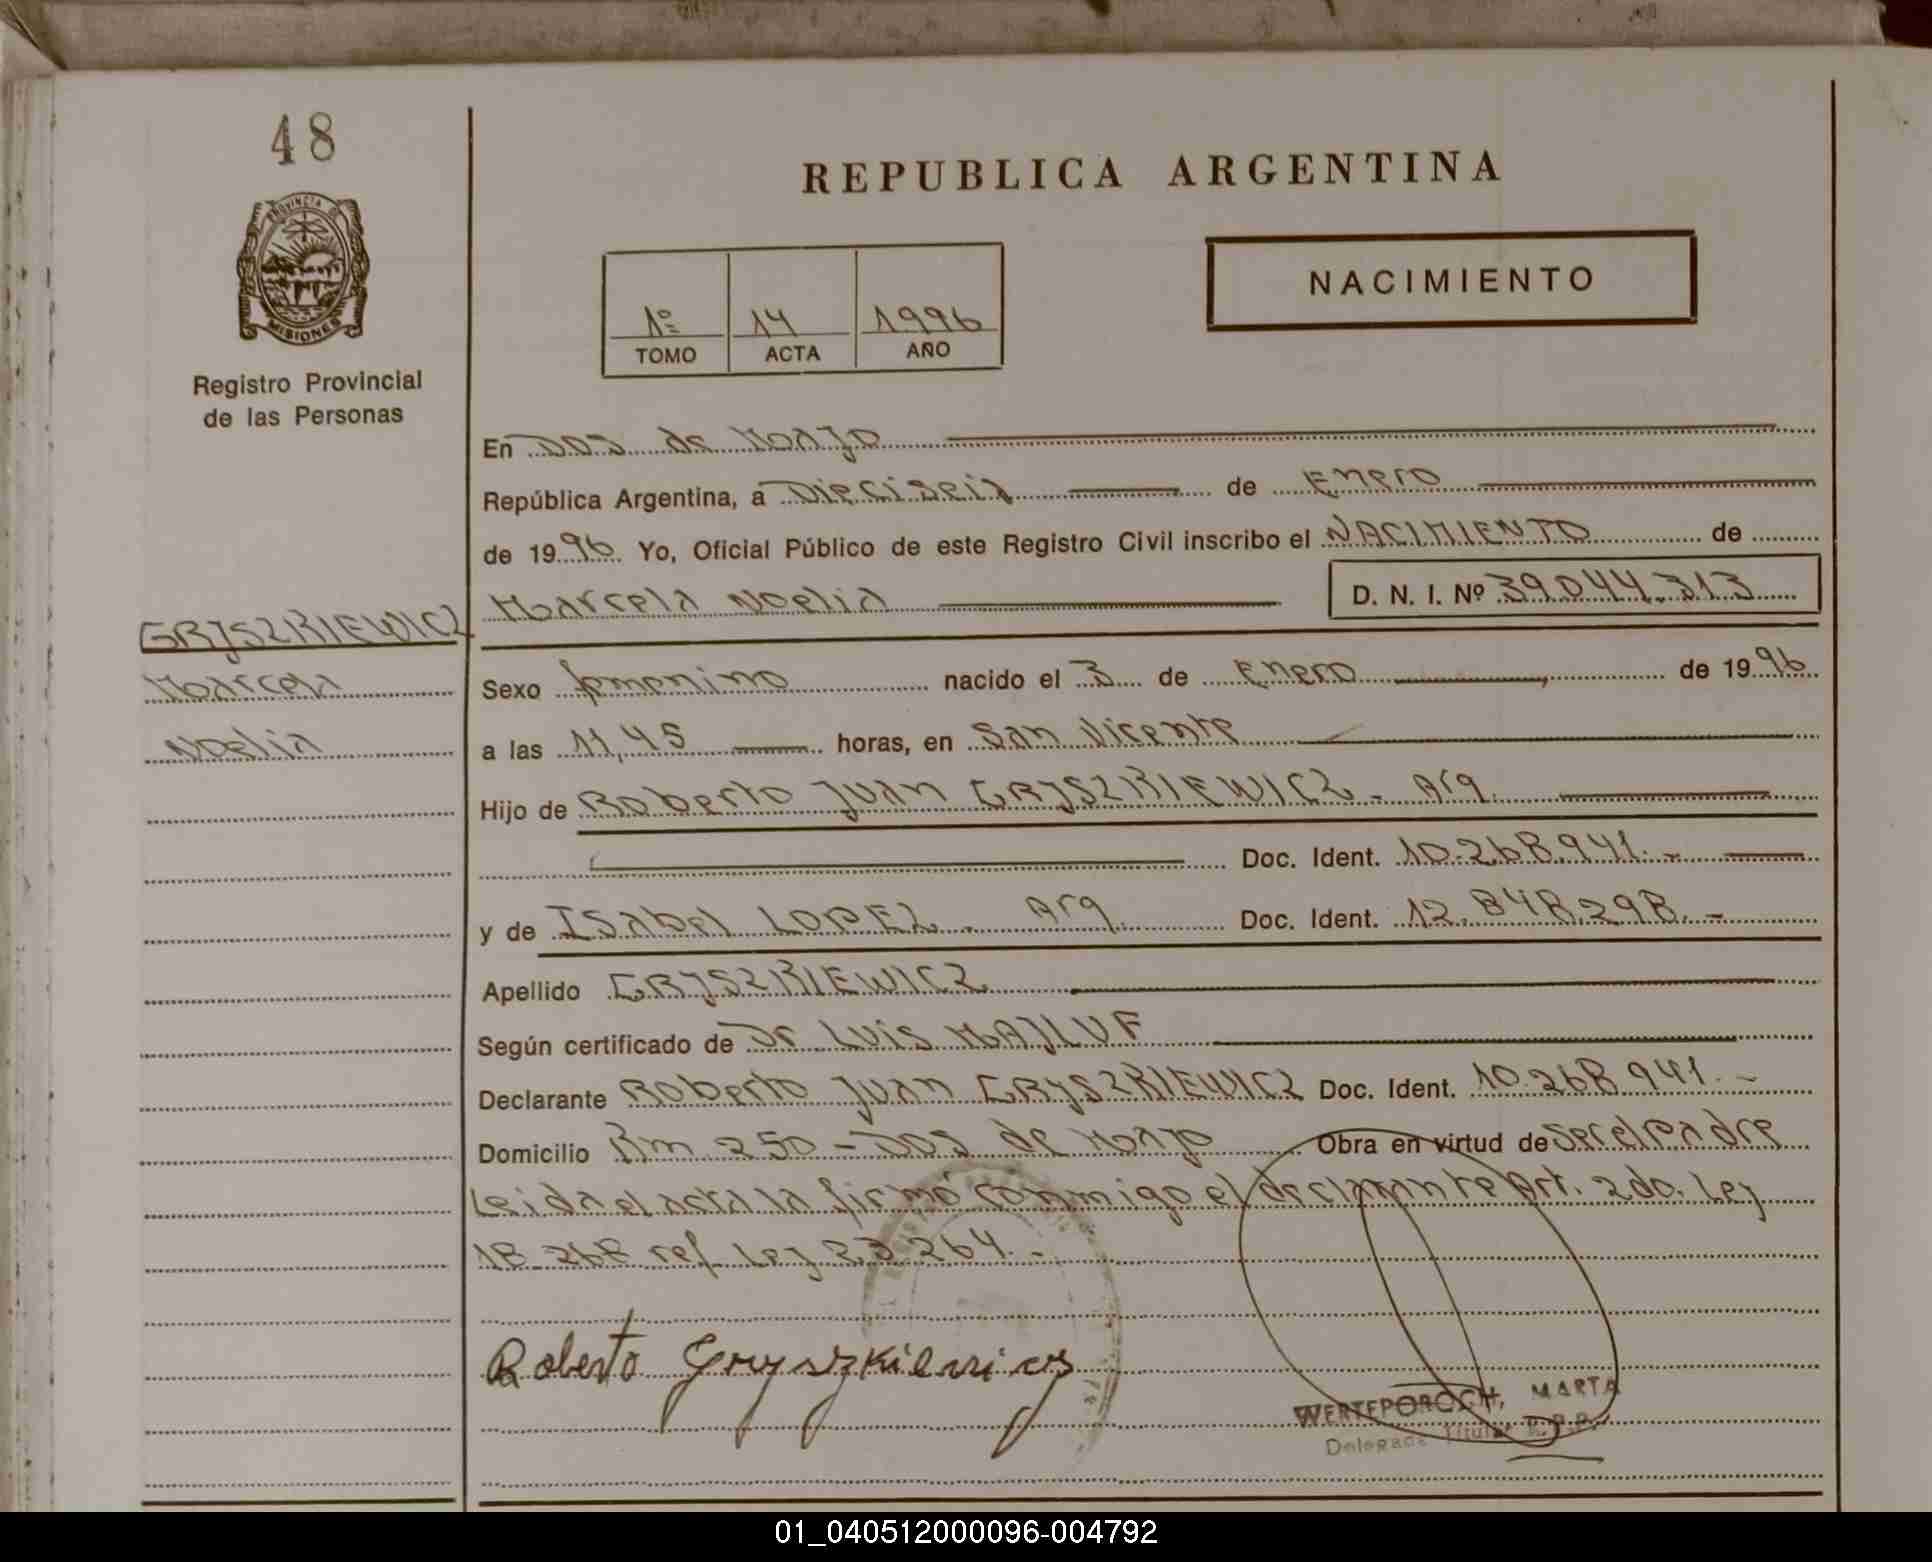 48
REPUBLICA ARGENTINA
PROVINCIA DE
MISIONES
Registro Provincial
de las Personas
1º 14 1996
TOMO ACTA AÑO
NACIMIENTO
En Dos de Mayo
República Argentina, a Dieciseis de Enero
de 1996. Yo, Oficial Público de este Registro Civil inscribo el NACIMIENTO de
Marcela Noelia D. N. I. Nº 39.044.313
GRYSZKIEWICZ
Marcela
Noelia
Sexo femenino nacido el 3 de Enero de 1996
a las 11,45 horas, en San Vicente
Hijo de Roberto Juan GRYSZKIEWICZ - Arg.
Doc. Ident. 10.268.941.-
y de Isabel LOPEZ. Arg. Doc. Ident. 12.848.298.-
Apellido GRYSZKIEWICZ
Según certificado de Dr Luis MAJLUF
Declarante Roberto Juan GRYSZKIEWICZ Doc. Ident. 10.268.941.-
Domicilio Km 250 - Dos de Mayo Obra en virtud de ser el Padre
Leida el acta la firmó conmigo el declarante Art. 2do. Ley
18.268 ref. Ley 23.264.-
Roberto Gryszkiewicz
WERTEPOROCH, MARTA
Delegada Titular R.P.P.
01_040512000096-004792